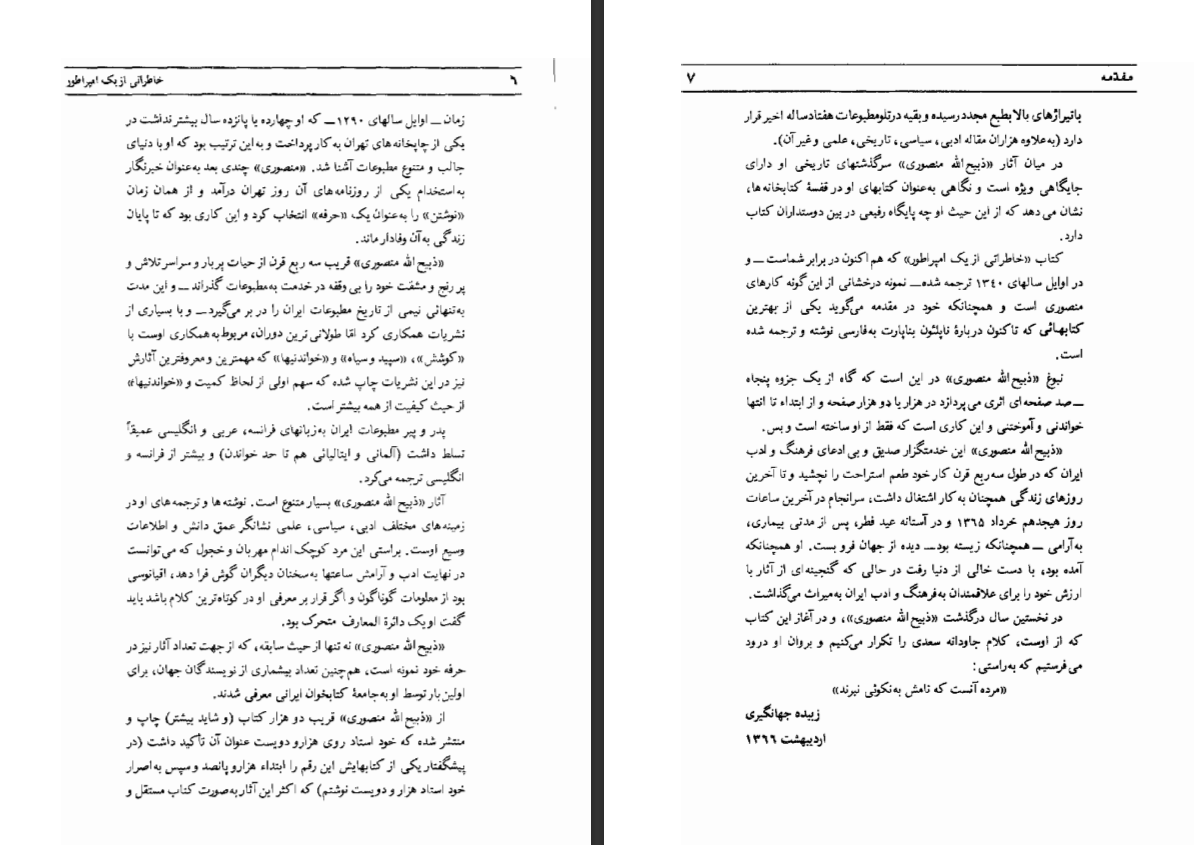 ۶ خاطراتی از یک امپراطور
زمان ــ اوایل سالهای ۱۲۹۰ ــ که او چهارده یا پانزده سال بیشتر نداشت در
یکی از چاپخانه‌های تهران به کار پرداخت و به این ترتیب بود که او با دنیای
جالب و متنوع مطبوعات آشنا شد. «منصوری» چندی بعد به‌عنوان خبرنگار
به‌استخدام یکی از روزنامه‌های آن روز تهران درآمد و از همان زمان
«نوشتن» را به‌عنوان یک «حرفه» انتخاب کرد و این کاری بود که تا پایان
زندگی به‌آن وفادار ماند.
«ذبیح الله منصوری» قریب سه ربع قرن از حیات پربار و سراسر تلاش و
پر رنج و مشقت خود را بی وقفه در خدمت به‌مطبوعات گذراند ــ و این مدت
به‌تنهائی نیمی از تاریخ مطبوعات ایران را در بر می‌گیرد ــ و با بسیاری از
نشریات همکاری کرد امّا طولانی‌ترین دوران، مربوط به‌همکاری اوست با
«کوشش»، «سپید و سیاه» و «خواندنیها» که مهمترین و معروفترین آثارش
نیز در این نشریات چاپ شده که سهم اولی از لحاظ کمیت و «خواندنیها»
از حیث کیفیت از همه بیشتر است.
پدر و پیر مطبوعات ایران به‌زبانهای فرانسه، عربی و انگلیسی عمیقاً
تسلط داشت (آلمانی و ایتالیائی هم تا حد خواندن) و بیشتر از فرانسه و
انگلیسی ترجمه می‌کرد.
آثار «ذبیح الله منصوری» بسیار متنوع است. نوشته‌ها و ترجمه‌های او در
زمینه‌های مختلف ادبی، سیاسی، علمی نشانگر عمق دانش و اطلاعات
وسیع اوست. براستی این مرد کوچک اندام مهربان و خجول که می‌توانست
در نهایت ادب و آرامش ساعتها به‌سخنان دیگران گوش فرا دهد، اقیانوسی
بود از معلومات گوناگون و اگر قرار بر معرفی او در کوتاه‌ترین کلام باشد باید
گفت او یک دائرة المعارف متحرک بود.
«ذبیح الله منصوری» نه تنها از حیث سابقه، که از جهت تعداد آثار نیز در
حرفه خود نمونه است، هم‌چنین تعداد بیشماری از نویسندگان جهان، برای
اولین بار توسط او به‌جامعهٔ کتابخوان ایرانی معرفی شدند.
از «ذبیح الله منصوری» قریب دو هزار کتاب (و شاید بیشتر) چاپ و
منتشر شده که خود استاد روی هزارو دویست عنوان آن تأکید داشت (در
پیشگفتار یکی از کتابهایش این رقم را ابتداء هزارو پانصد و سپس به‌اصرار
خود استاد هزار و دویست نوشتم) که اکثر این آثار به‌صورت کتاب مستقل و
مقدّمه ۷
باتیراژهای بالا بطبع مجدد رسیده و بقیه در تلو مطبوعات هفتاد ساله اخیر قرار
دارد (به‌علاوه هزاران مقاله ادبی، سیاسی، تاریخی، علمی و غیر آن).
در میان آثار «ذبیح الله منصوری» سرگذشتهای تاریخی او دارای
جایگاهی ویژه است و نگاهی به‌عنوان کتابهای او در قفسهٔ کتابخانه‌ها،
نشان می‌دهد که از این حیث او چه پایگاه رفیعی در بین دوستداران کتاب
دارد.
کتاب «خاطراتی از یک امپراطور» که هم اکنون در برابر شماست ــ و
در اوایل سالهای ۱۳۴۰ ترجمه شده ــ نمونه درخشانی از این گونه کارهای
منصوری است و همچنانکه خود در مقدمه می‌گوید یکی از بهترین
کتابهائی که تا کنون دربارهٔ ناپلئون بناپارت به‌فارسی نوشته و ترجمه شده
است.
نبوغ «ذبیح الله منصوری» در این است که گاه از یک جزوه پنجاه
ــ صد صفحه‌ای اثری می‌پردازد در هزار یا دو هزار صفحه و از ابتداء تا انتها
خواندنی و آموختنی و این کاری است که فقط از او ساخته است و بس.
«ذبیح الله منصوری» این خدمتگزار صدیق و بی ادعای فرهنگ و ادب
ایران که در طول سه ربع قرن کار خود طعم استراحت را نچشید و تا آخرین
روزهای زندگی همچنان به‌کار اشتغال داشت، سرانجام در آخرین ساعات
روز هیجدهم خرداد ۱۳۶۵ و در آستانه عید فطر، پس از مدتی بیماری،
به‌آرامی ــ همچنانکه زیسته بود ــ دیده از جهان فرو بست. او همچنانکه
آمده بود، با دست خالی از دنیا رفت در حالی که گنجینه‌ای از آثار با
ارزش خود را برای علاقمندان به‌فرهنگ و ادب ایران به‌میراث می‌گذاشت.
در نخستین سال درگذشت «ذبیح الله منصوری»، و در آغاز این کتاب
که از اوست، کلام جاودانه سعدی را تکرار می‌کنیم و بروان او درود
می‌فرستیم که به‌راستی:
«مرده آنست که نامش به‌نکوئی نبرند»
زبیده جهانگیری
اردیبهشت ۱۳۶۶